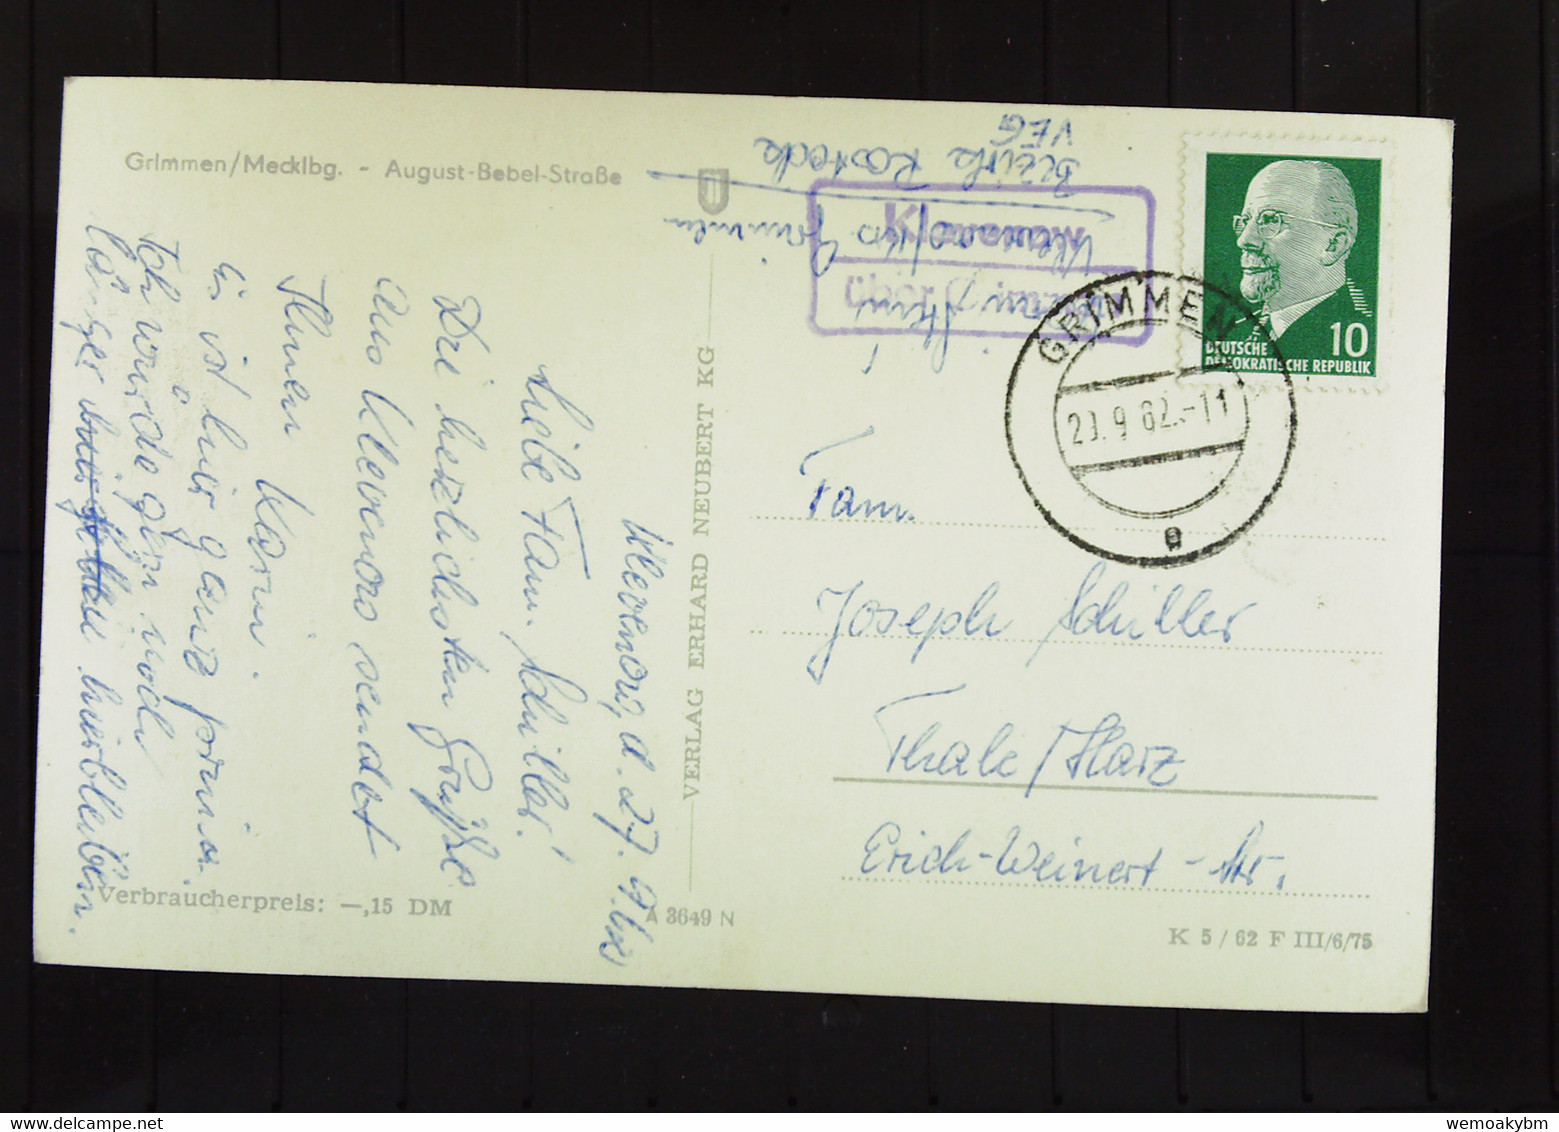 Grimmen/Mecklbg. - August-Bebel-Straße
Klevenow, d. 27.9.62
Liebe Fam. Schiller!
Die herzlichsten Grüße
aus Klevenow sendet
Ihnen Karin.
Es ist hier ganz prima.
Ich würde gern noch
länger hierbleiben.
Verbraucherpreis: —,15 DM
A 3649 N
VERLAG ERHARD NEUBERT KG
Klevenow
über Grimmen
Klevenow/Krs Grimmen
Bezirk Rostock
VEG
DEUTSCHE
DEMOKRATISCHE REPUBLIK
10
GRIMMEN
9.62.-11
Fam.
Joseph Schiller
Thale/Harz
Erich-Weinert-Str.
K 5/62 F III/6/75
wemoakybm
delcampe.net